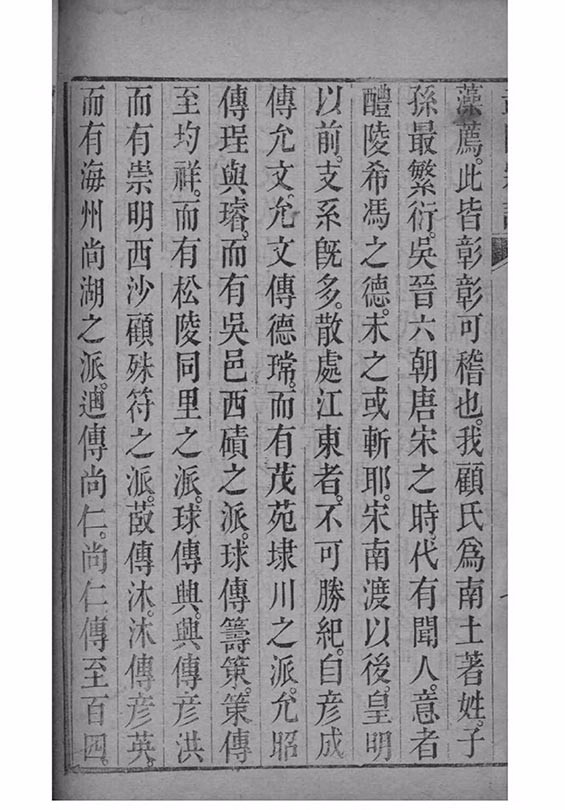 藻薦。此皆彰彰可稽也。我顧氏爲南土著姓。子
孫最繁衍。吳晉六朝唐宋之時。代有聞人。意者
醴陵希馮之德。未之或斬耶。宋南渡以後。皇明
以前。支系旣多。散處江東者。不可勝紀。自彦成
傳允文。允文傳德瑺。而有茂苑埭川之派。允昭
傳珵與璿。而有吳邑西磧之派。球傳籌策。策傳
至均祥。而有松陵同里之派。球傳興。興傳彦洪
而有崇明西沙顧殊符之派。敔傳沐。沐傳彦英。
而有海州尚湖之派。迪傳尚仁。尚仁傳至百四。